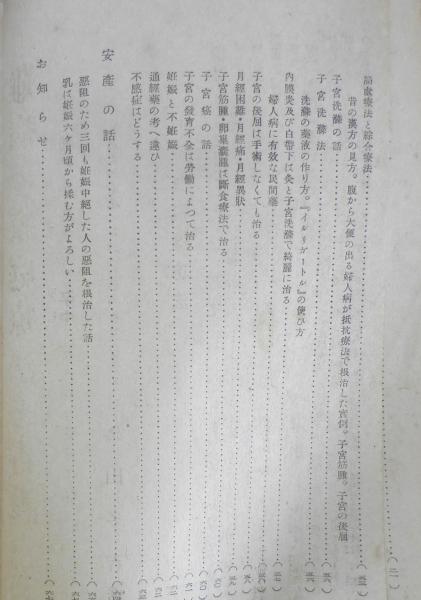 局處療法と綜合療法
昔の漢方の見方。腹から大便の出る婦人病が抵抗療法で根治した實例。子宮筋腫。子宮の後屈
子宮洗滌の話
子宮洗滌法
洗滌の藥液の作り方。『イルリガートル』の使ひ方
内膜炎及び白帶下は灸と子宮洗滌で綺麗に治る
婦人病に有效な民間藥
子宮の後屈は手術しなくても治る
月經困難・月經痛・月經異狀
子宮筋腫・卵巢囊腫は斷食療法で治る
子宮癌の話
子宮の發育不全は勞働によつて治る
妊娠と不妊娠
通經藥の考へ違ひ
不感症はどうする
安産の話
惡阻のため三回も妊娠中絶した人の惡阻を根治した話
乳は妊娠六ケ月頃から揉む方がよろしい
お知らせ